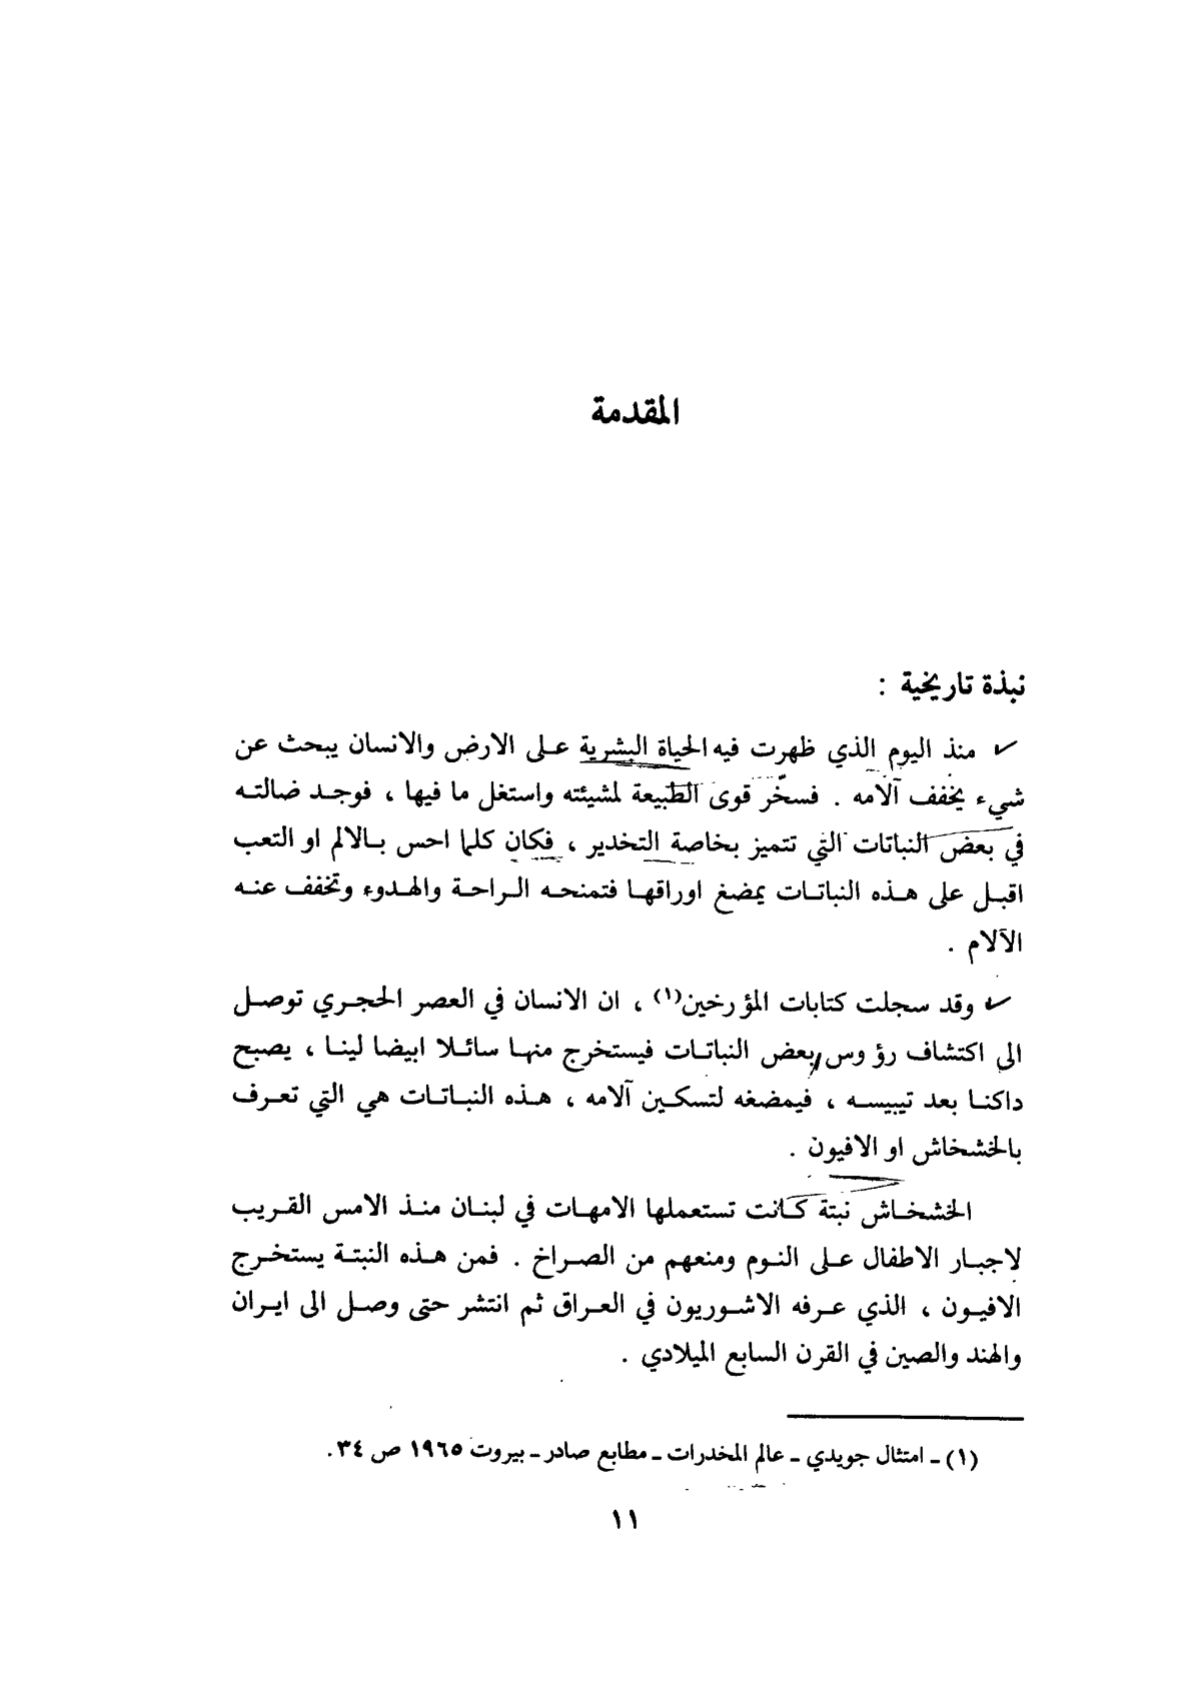 المقدمة
نبذة تاريخية :
منذ اليوم الذي ظهرت فيه الحياة البشرية على الارض والانسان يبحث عن
شيء يخفف آلامه . فسخّر قوى الطبيعة لمشيئته واستغل ما فيها ، فوجد ضالته
في بعض النباتات التي تتميز بخاصة التخدير ، فكان كلما احس بالالم او التعب
اقبل على هذه النباتات يمضغ اوراقها فتمنحه الراحة والهدوء وتخفف عنه
الآلام .
وقد سجلت كتابات المؤرخين(١) ، ان الانسان في العصر الحجري توصل
الى اكتشاف رؤوس بعض النباتات فيستخرج منها سائلا ابيضا لينا ، يصبح
داكنا بعد تيبيسه ، فيمضغه لتسكين آلامه ، هذه النباتات هي التي تعرف
بالخشخاش او الافيون .
الخشخاش نبتة كانت تستعملها الامهات في لبنان منذ الامس القريب
لاجبار الاطفال على النوم ومنعهم من الصراخ . فمن هذه النبتة يستخرج
الافيون ، الذي عرفه الاشوريون في العراق ثم انتشر حتى وصل الى ايران
والهند والصين في القرن السابع الميلادي .
(١) ـ امتثال جويدي ـ عالم المخدرات ـ مطابع صادر ـ بيروت ١٩٦٥ ص ٣٤ .
١١